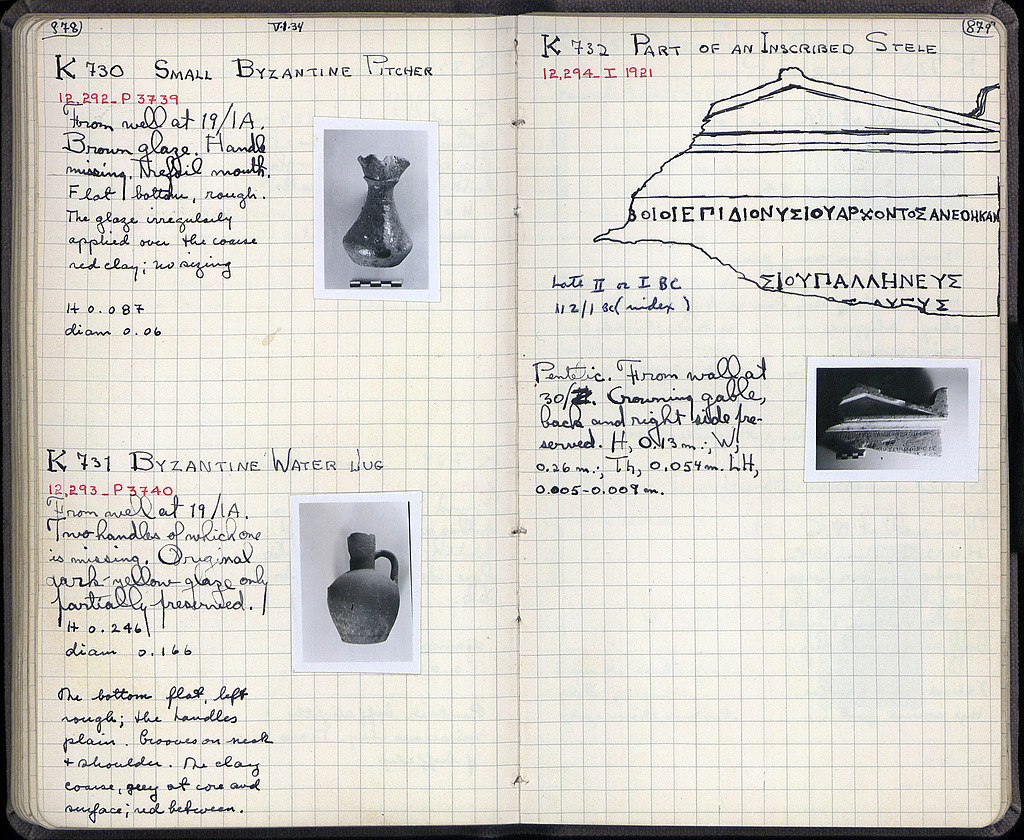 878
V-1-34
K 730 SMALL BYZANTINE PITCHER
12,292_P 3739
From well at 19/IA.
Brown glaze. Handle
missing. Trefoil mouth.
Flat bottom, rough.
The glaze irregularly
applied over the coarse
red clay; no sizing
H 0.087
diam 0.06
K 731 BYZANTINE WATER JUG
12,293_P 3740
From well at 19/IA.
Two handles of which one
is missing. Original
dark-yellow glaze only
partially preserved.
H 0.246
diam 0.166
The bottom flat, left
rough; the handles
plain. Grooves on neck
+ shoulder. The clay
coarse, grey at core and
surface; red between.
879
K 732 PART OF AN INSCRIBED STELE
12,294_I 1921
ΟΙΟΙΕΠΙΔΙΟΝΥΣΙΟΥΑΡΧΟΝΤΟΣΑΝΕΘΗΚΑΝ
ΣΙΟΥΠΑΛΛΗΝΕΥΣ
Late II or I BC
112/1 BC (index)
Pentelic. From wall at
30/. Crowning gable,
back and right side pre-
served. H, 0.13 m.; W,
0.26 m.; Th, 0.054 m. LH,
0.005-0.009 m.